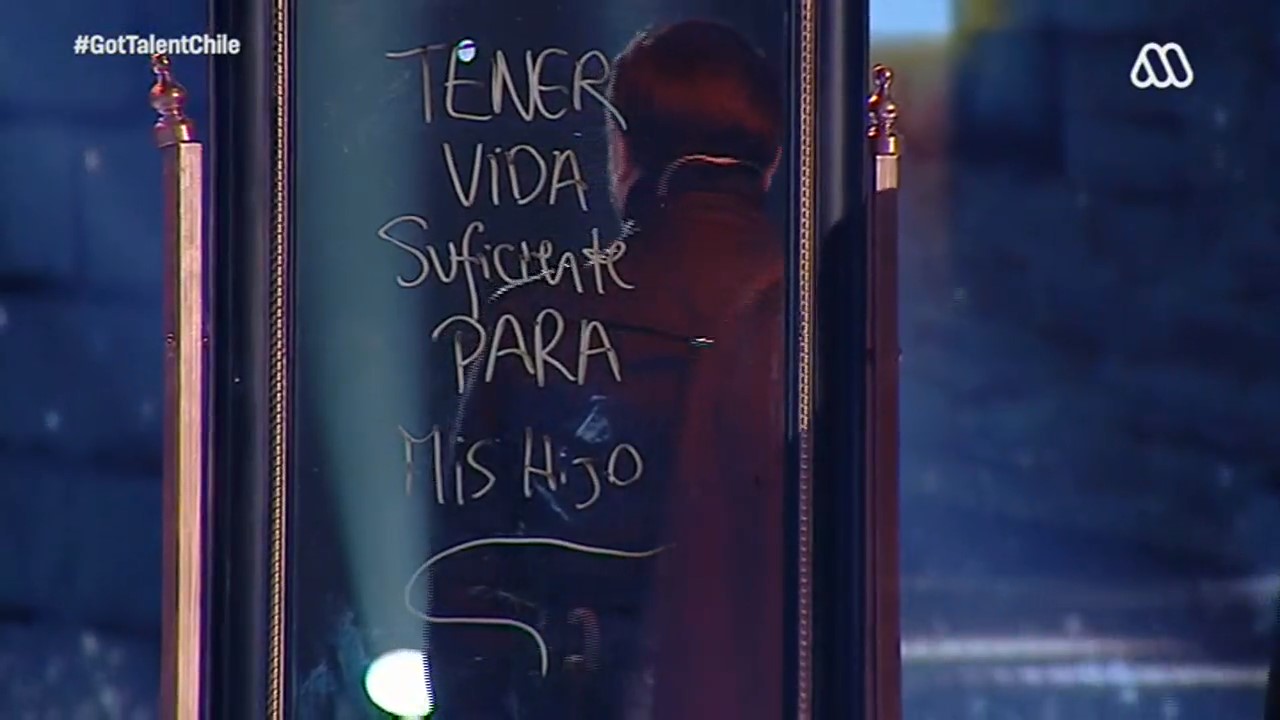 #GotTalentChile
TENER
ViDA
Suficiente
PARA
Mis Hijo